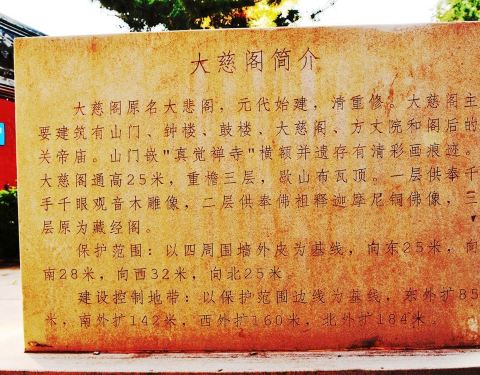 大慈阁简介
大慈阁原名大悲阁，元代始建，清重修。大慈阁主
要建筑有山门、钟楼、鼓楼、大慈阁、方丈院和阁后的
关帝庙。山门嵌"真觉禅寺"横额并遗存有清彩画痕迹。
大慈阁通高25米，重檐三层，歇山布瓦顶。一层供奉千
手千眼观音木雕像，二层供奉佛祖释迦牟尼铜佛像，三
层原为藏经阁。
保护范围：以四周围墙外皮为基线，向东25米，向
南28米，向西32米，向北25米。
建设控制地带：以保护范围边线为基线，东外扩85
米，南外扩142米，西外扩160米，北外扩184米。